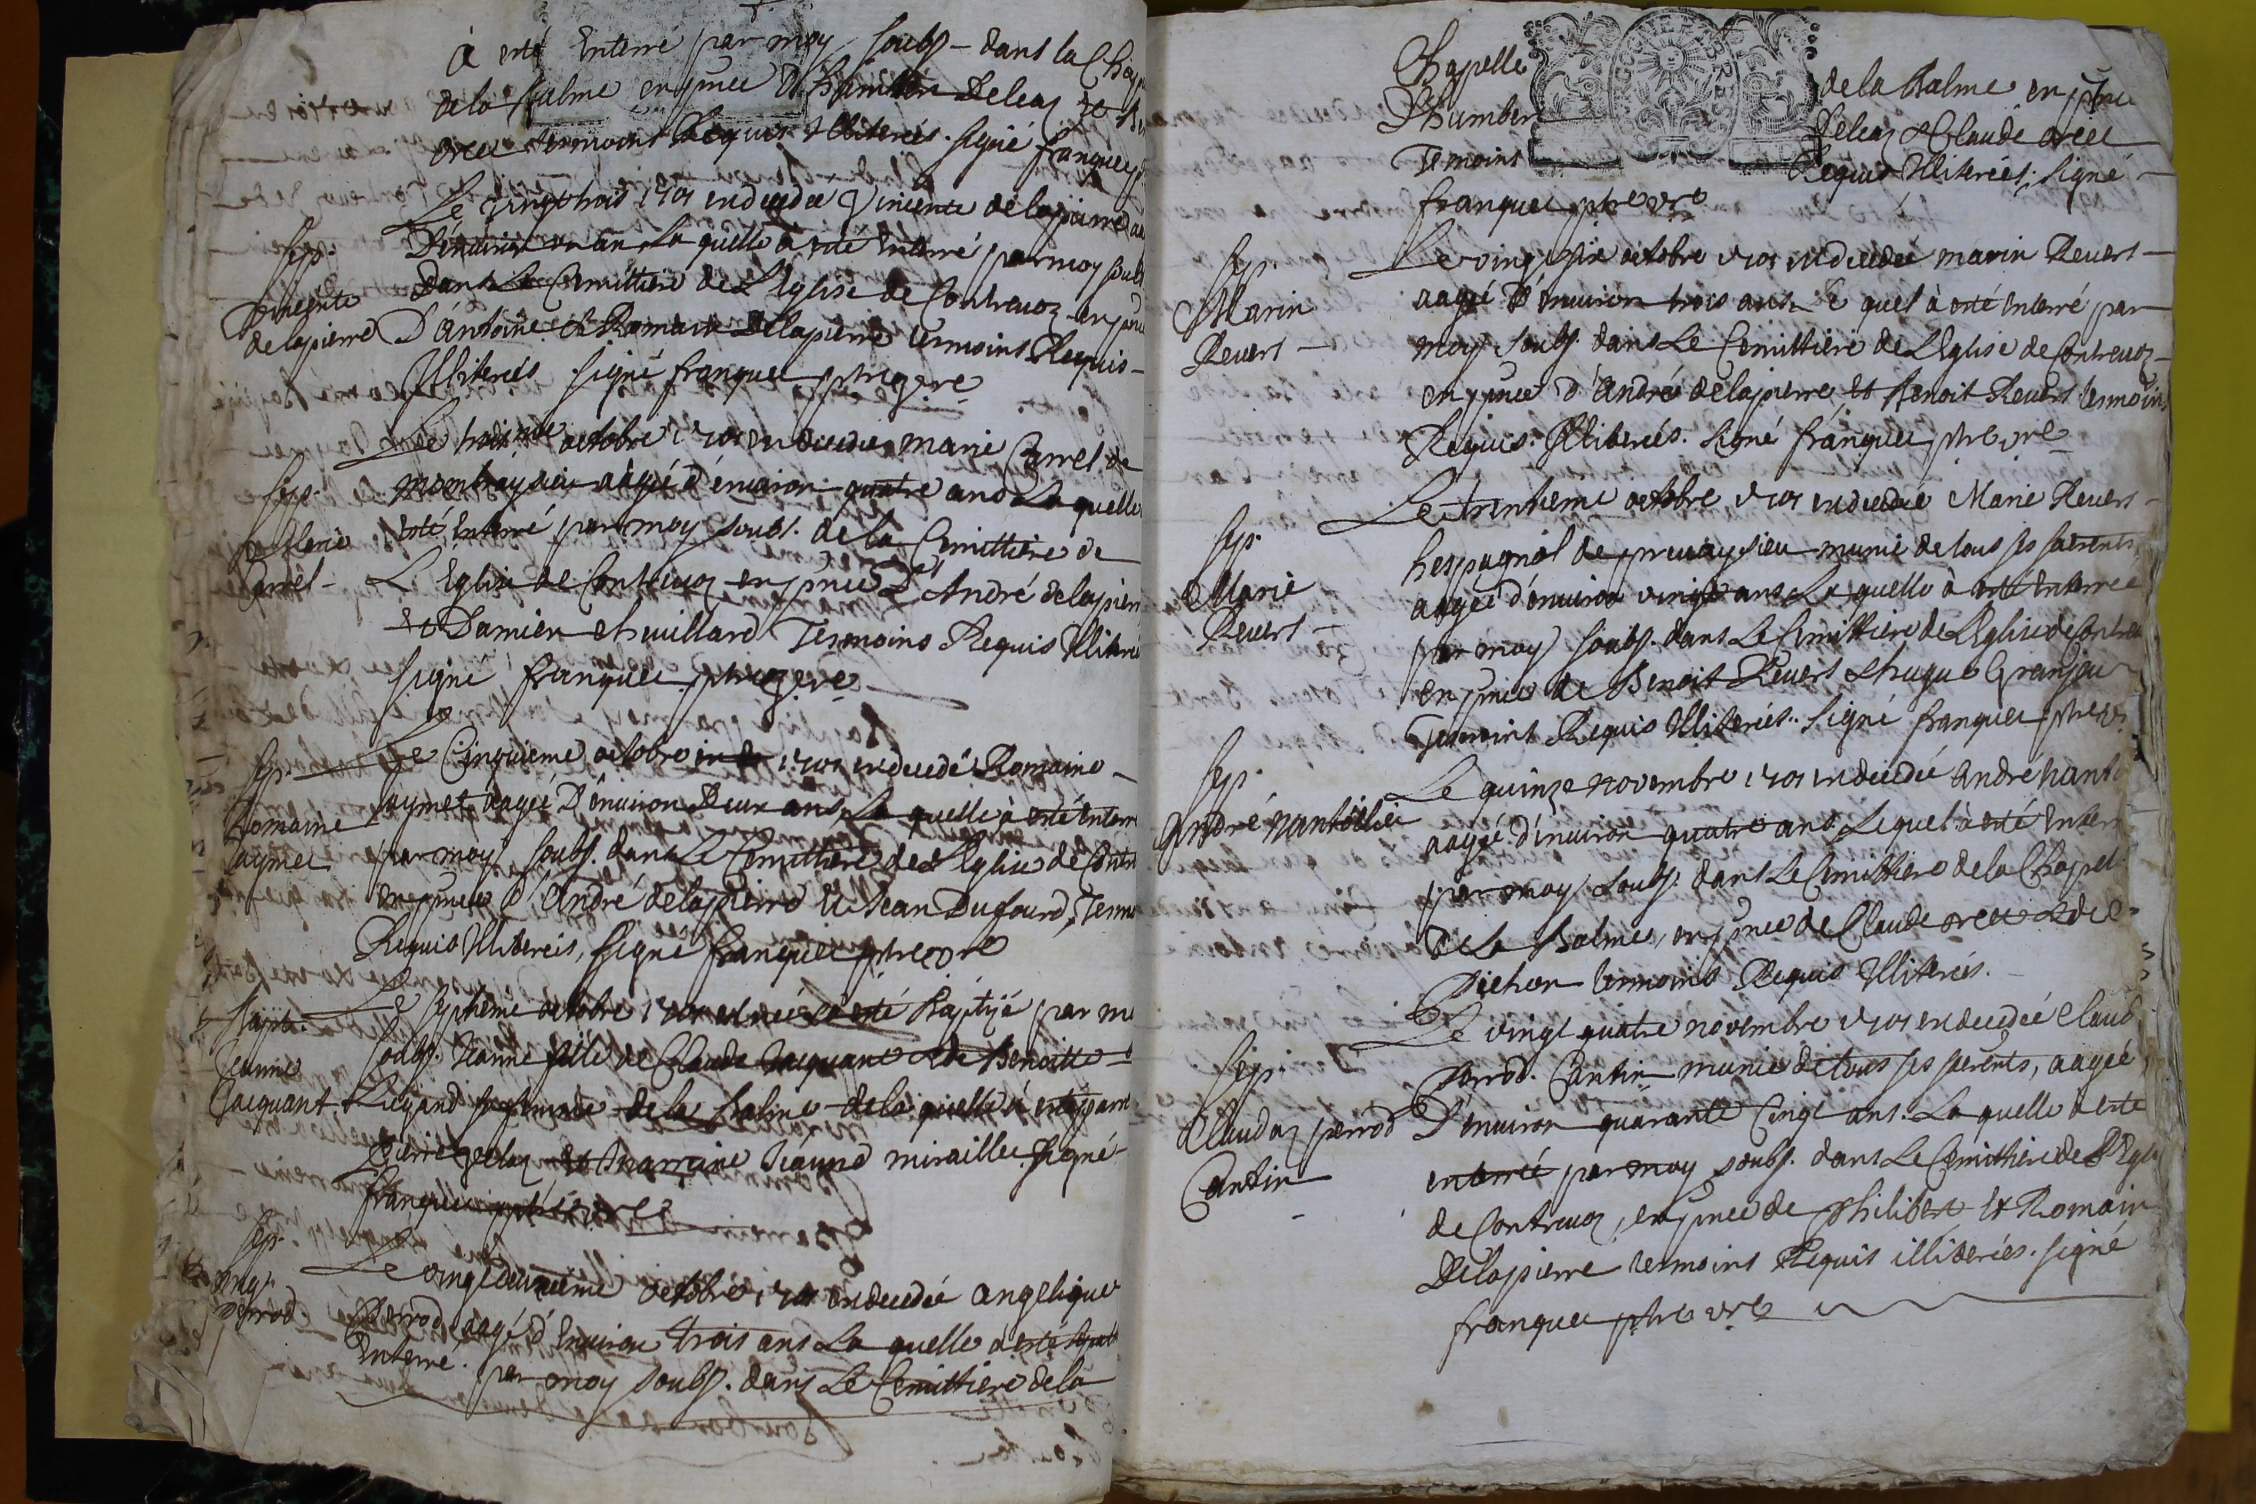 à esté Enterré par moy soubs. dans la Chap
de la Balme en pnce d'humbert Deleaz et
orcet termoins Requis Illiterés. signé franquet
Le vingt trois 1701 en decedée Vincente delapierre
D'environ un an La quelle à esté Enterré par moy soub
Sep.
Vincente
delapierre
dans Le Cemittiere de L'Eglise de Contrevoz en pnce
D'antoine et Romain Delapierre termoins Requis
Illiterés signé franquet ptre
Le troisme octobre 1701 en decedée marie Carrel de
Sep.
Marie
Carrel
montbreysieu aagée d'environ quatre ans La quelle
esté Enterré par moy soubs. de la Cemittiere de
L'Eglise de Contrevoz en pnce D'André delapierr
et Damien chevillard Termoins Requis Illiteré
signé franquet ptre
Le Cinquieme octobre 1701 en decedé Romaine
Sep.
Romaine
aymet
aymet aagée D'environ Deux ans La quelle à esté Enterr
par moy soubs. dans Le Cemittiere de L'Eglise de Contr
en pnce d'André delapierre et Jean Dufourd, Termo
Requis Illiterés, signé franquet ptre vre
Le septieme octobre 1701 est née et à esté Baptizé par mo
Bapt.
Jeanne
Jacquant
soubs. Jeanne fille de Claude Jacquant et de Benoitte
sa femme de la Balme de la quelle à esté parr
Pierre Deleaz et marraine Jeanne miraillet signé
franquet ptre vre
Sep.
ang.
Perrod
Le vingt deuxieme octobre 1701 en decedée angelique
Perrod aagé d'Environ trois ans La quelle à esté
Enterré. par moy soubs. dans Le Cemittiere de la
Chapelle de la Balme en pnce
D'humber Deleaz et Claude orcet
Temoins Requis Illiterés. signé
franquet ptre vre
Sep.
Marin
Revers
Le vingt six octobre 1701 en decedée marin Revers
aagé D'environ trois ans Le quel à esté Enterré par
moy soubs. dans Le Cemittiere de L'Eglise de Contrevoz
en pnce d'André delapierre et Benoit Revers termoins
Requis. Illiterés. signé franquet ptre vre
Sep.
Marie
Revers
Le trentieme octobre 1701 en decedée Marie Revers
hespagnol de preveysieu munie de tous ses sacrents
aagée d'environ vingt ans La quelle à esté Enterrée
par moy soubs. dans Le Cemittiere de L'Eglise de Contrev
en pnce de Benoit Revers et hugue Granjeu
Termoins Requis Illiterés. signé franquet ptre vr
Sep.
André nantoillier
Le quinze novembre 1701 en decedée andré nanto
aagé d'environ quatre ans Lequel à esté Enterr
par moy soubs. dans Le Cemittiere de la Chapel
de La Balme, en pnce de Claude orcet et de
Pichon termoins Requis Illiterés.
Sep.
Claudaz perrod
Cantin
Le vingt quatre novembre 1701 en decedée Claud
Perrod. Cantin munie de tous ses sacrents, aagée
D'environ quarante Cinqt ans. La quelle à esté
enterrée par moy soubs. dans Le Cemittiere de L'Egli
de Contrevoz, en pnce de philibert Et Romain
Delapierre termoins Requis illiterés. signé
franquet ptre vre